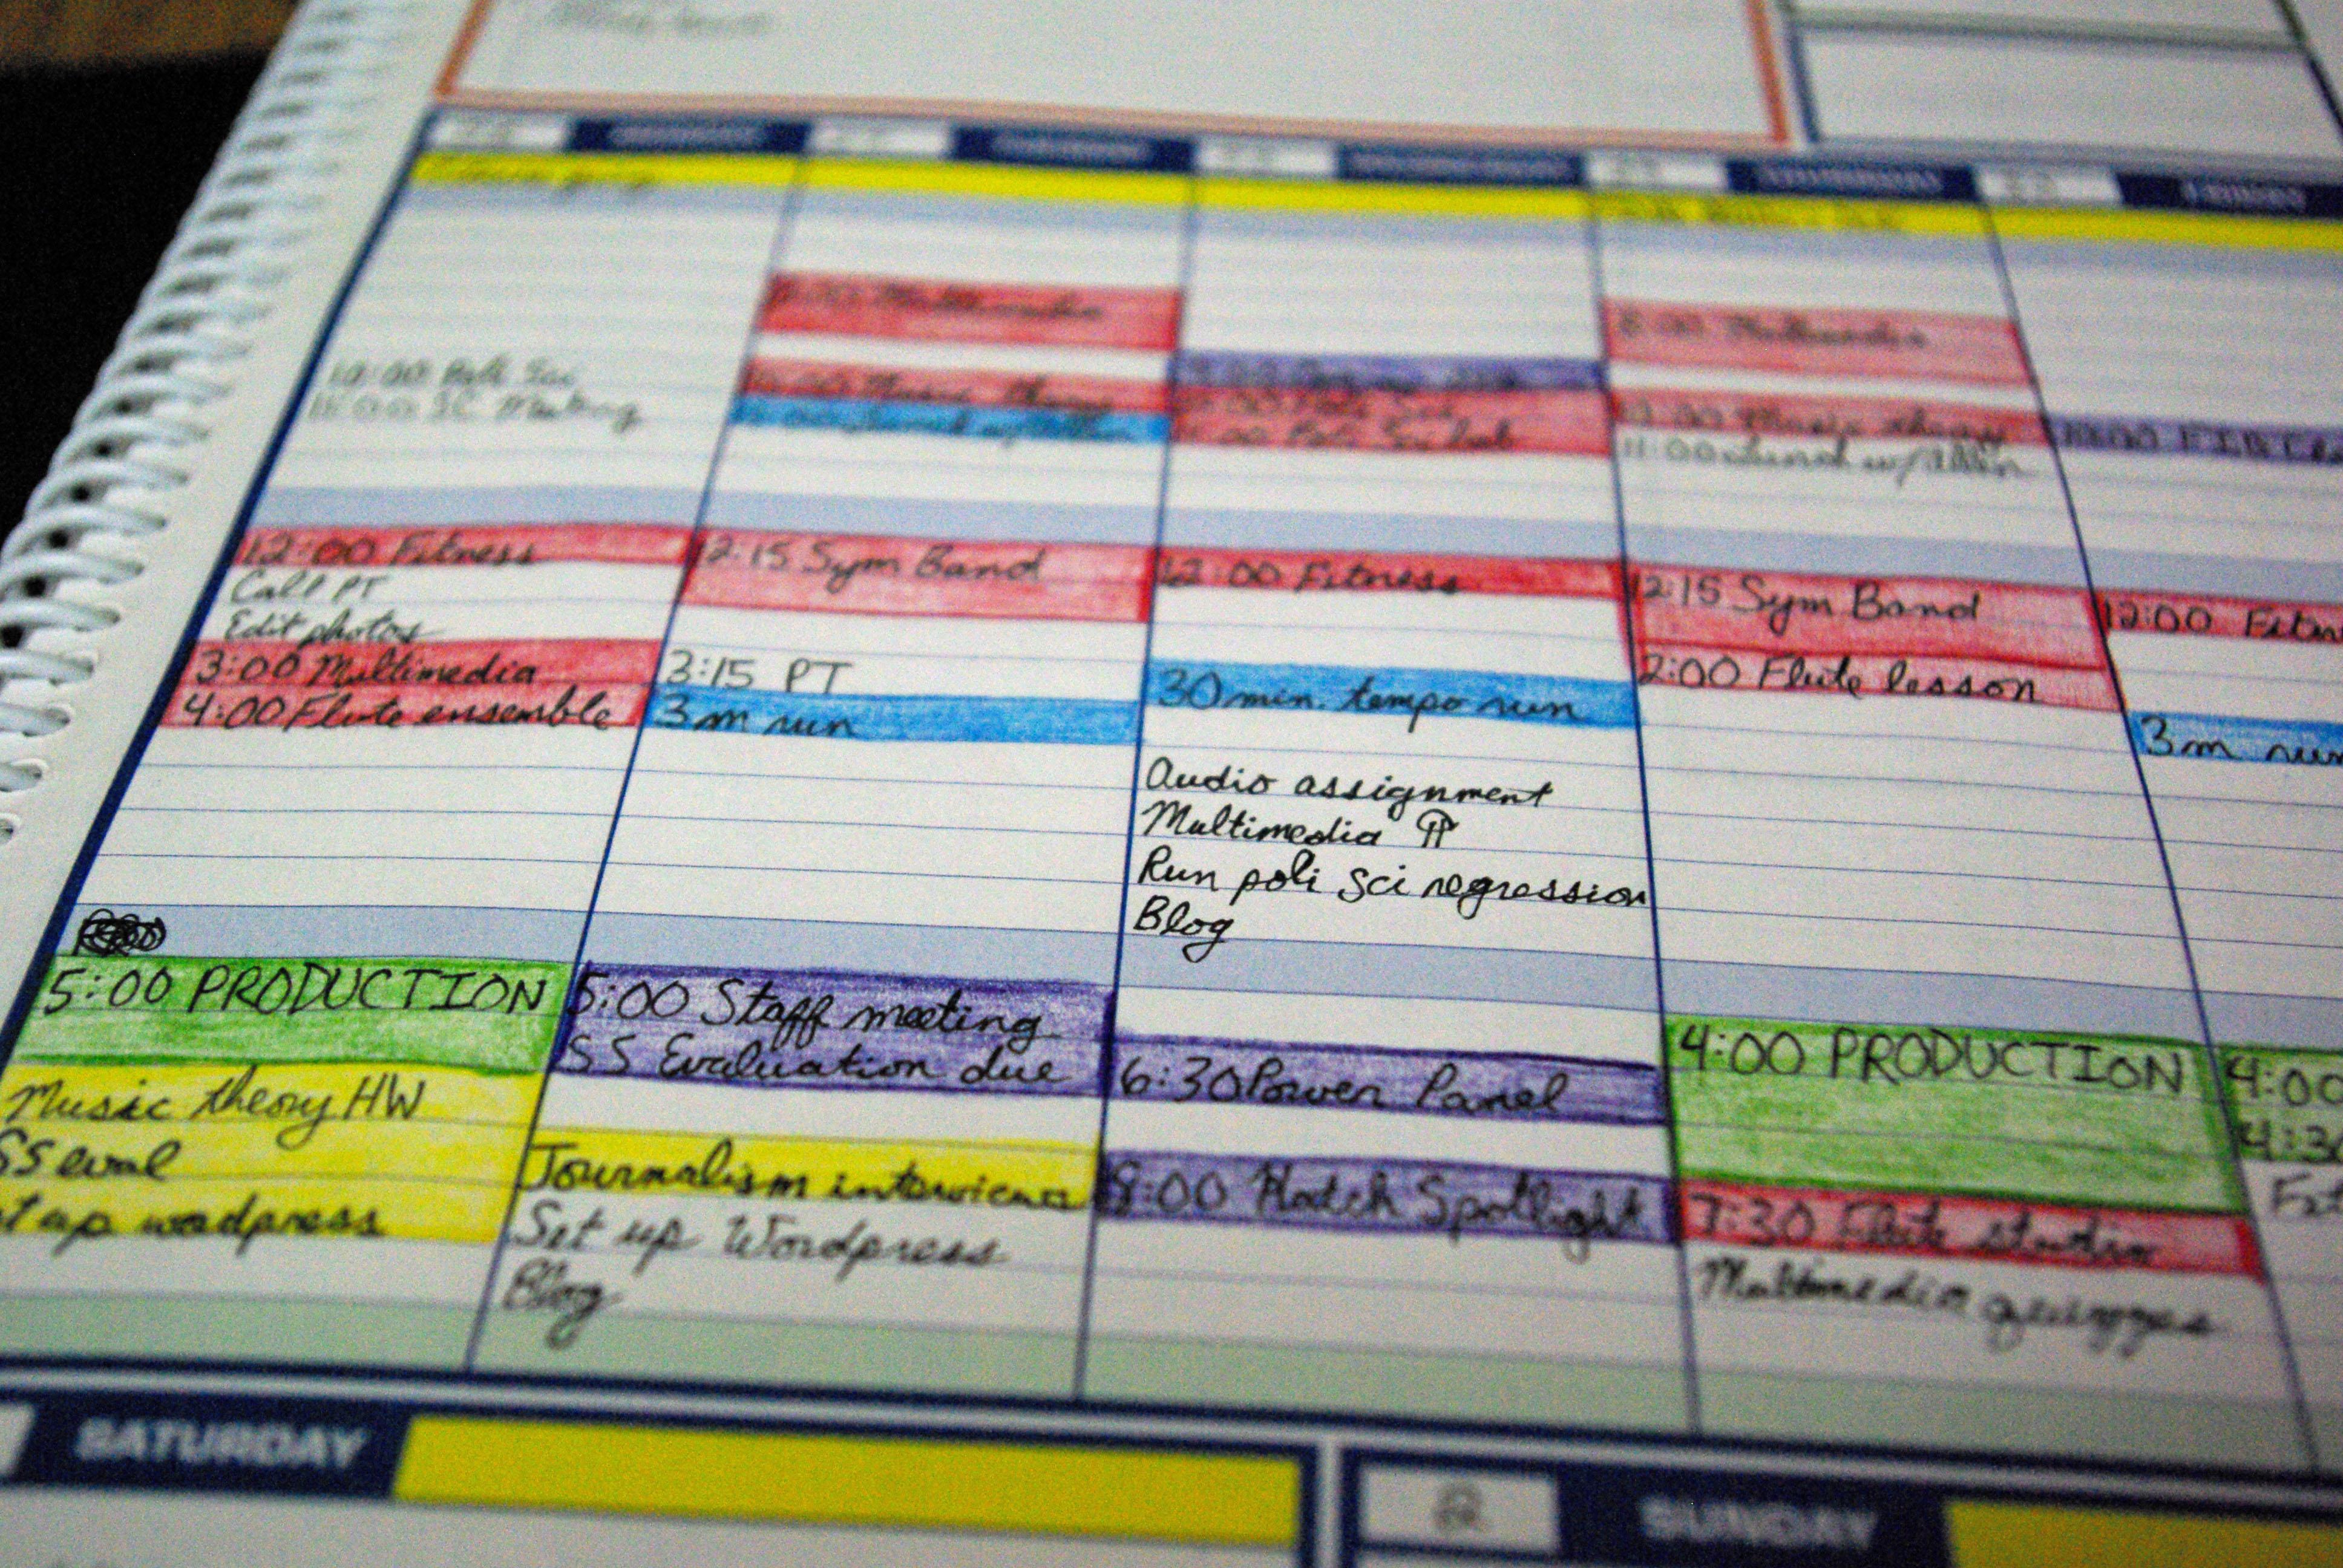 MONDAY
THURSDAY
FRIDAY
10:00 Poli Sci
11:00 SC Meeting
12:00 Fitness
Call PT
Edit photos
3:00 Multimedia
4:00 Flute ensemble
5:00 PRODUCTION
Music theory HW
SS eval
up wordpress
8:00 Multimedia
10:00 Music theory
11:00 Lunch w/
12:15 Sym Band
3:15 PT
3m run
5:00 Staff meeting
SS Evaluation due
Journalism interviews
Set up Wordpress
Blog
9:00
10:00 Poli Sci
11:00 Poli Sci lab
12:00 Fitness
30 min. tempo run
Audio assignment
Multimedia
Run poli sci regression
Blog
6:30 Power Panel
8:00 Hatch Spotlight
8:00 Multimedia
10:00 Music theory
11:00 Lunch w/
12:15 Sym Band
2:00 Flute lesson
4:00 PRODUCTION
7:30 Flute studio
Multimedia quizzes
10:00
12:00
3m run
4:00
4:30
SATURDAY
2
SUNDAY